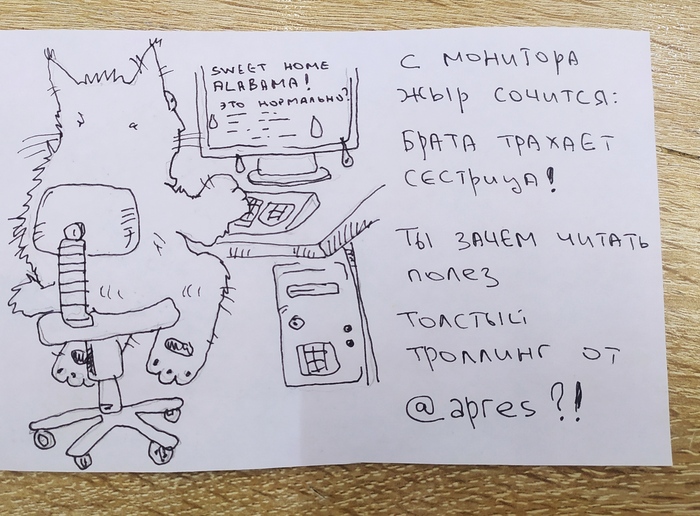 SWEET HOME
ALABAMA!
ЭТО НОРМАЛЬНО?
С МОНИТОРА
ЖЫР СОЧИТСЯ:
БРАТА ТРАХАЕТ
СЕСТРИЦА!
ТЫ ЗАЧЕМ ЧИТАТЬ
ПОЛЕЗ
ТОЛСТЫЙ
ТРОЛЛИНГ ОТ
@apres?!